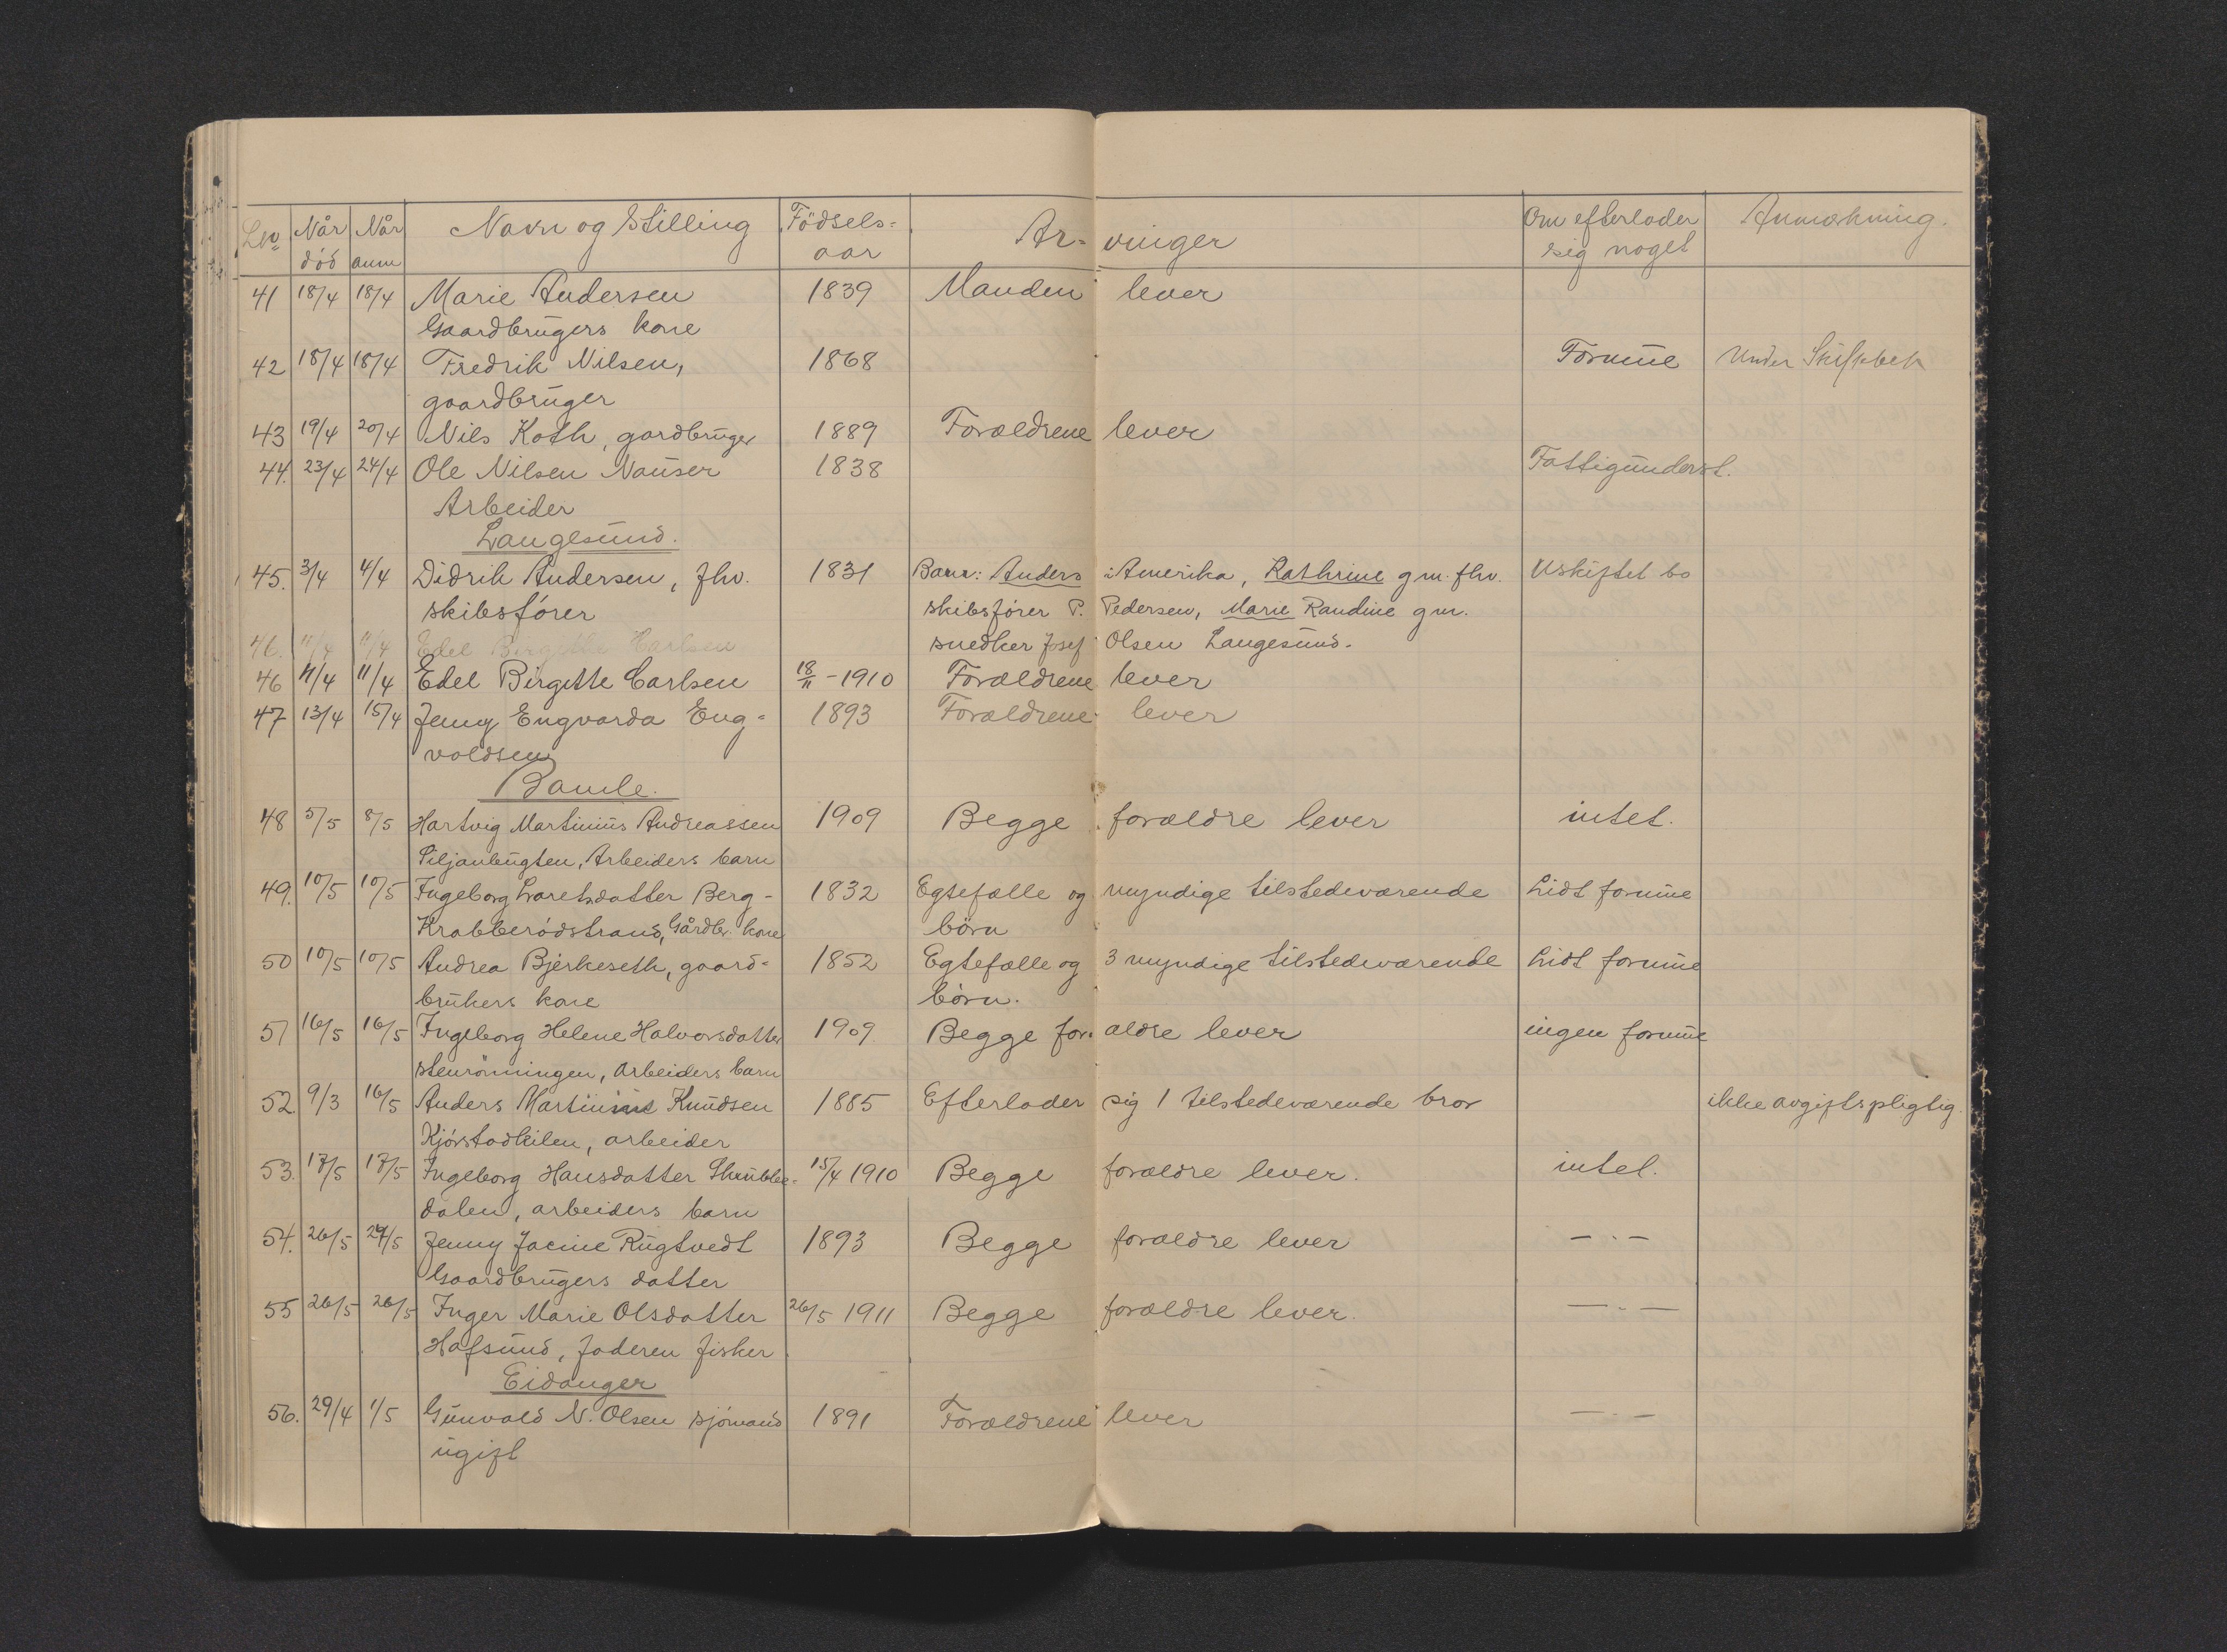 Lno Når død Når anm Navn og Stilling Fødsels= aar Ar= vinger Om efterlader sig noget Anmærkning.
41 18/4 18/4 Marie Andersen 1839 Manden lever
Gaardbrugers kone
42 18/4 18/4 Fredrik Nilsen, 1868 Formue Under
gaardbruger
43 19/4 20/4 Nils Koth, gardbruger 1889 Forældrene lever
44. 23/4 24/4 Ole Nilsen Nauser 1838 Fattigunderst.
Arbeider
Langesund.
45. 3/4 4/4 Didrik Andersen, fhv. 1831 Barn: Anders i Amerika, Kathrine gm. fhv. Uskiftet bo
skibsfører skibsfører P. Pedersen, Marie Randine gm.
46. 11/4 11/4 Edel Birgitte Karlsen snedker Josef Olsen Langesund.
46 11/4 11/4 Edel Birgitte Carlsen 18/11 - 1910 Forældrene lever
47 13/4 15/4 Jenny Engvarda Eng= 1893 Forældrene lever
valdsen
Bamle.
48 5/5 8/5 Hartvig Martinius Andreassen 1909 Begge forældre lever intet.
Siljanbugten, Arbeiders barn
49. 10/5 10/5 Ingeborg Laretsdatter Berg- 1832 Egtefælle og myndige tilstedeværende Lidt formue
Krabberødstrand, Gårdbr. kone børn
50 10/5 10/5 Andrea Bjerkeseth, gaard= 1852 Egtefælle og 3 myndige tilstedeværende Lidt formue
brukers kone børn.
51 16/5 16/5 Ingeborg Helene Halvorsdatter 1909 Begge for= ældre lever ingen formue
Stenrønningen, Arbeiders barn
52. 9/3 16/5 Anders Knudsen 1885 Efterlader sig 1 tilstedeværende bror ikke avgiftspligtig.
Kjørstadkilen, arbeider
53. 17/5 17/5 Ingeborg Hansdatter Skrubbe= 15/4 1910 Begge forældre lever. intet.
dalen, arbeiders barn
54. 26/5 29/5 Jenny Jacine Rugtvedt 1893 Begge forældre lever — " —
Gaardbrugers datter
55 26/5 26/5 Inger Marie Olsdatter 26/5 1911 Begge forældre lever. — " —
Hafsund, faderen fisker
Eidanger
56. 29/4 1/5 Gunvald N. Olsen sjømand 1891 Forældrene lever — " —
ugift